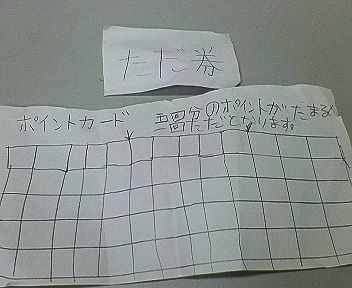 ただ券
ポイントカード
五回分のポイントがたまると
ただとなります。